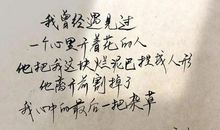 我曾经遇见过
一个心里开着花的人
他把我这块烂泥巴捏成人形
他离开前割掉了
我心中的最后一把杂草